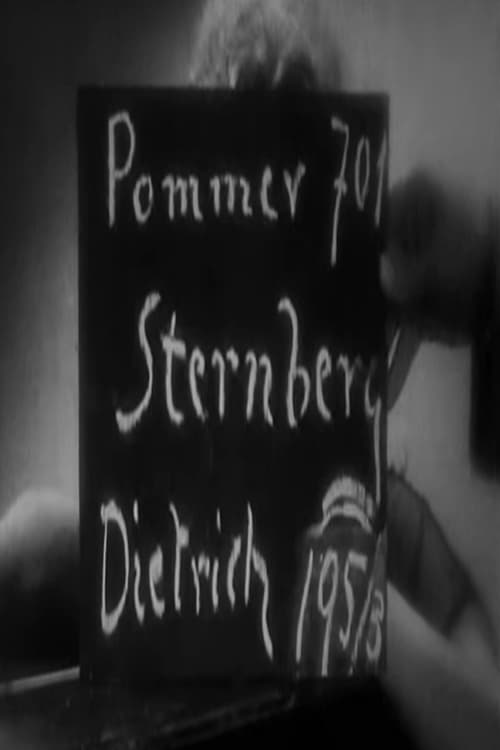 Pommer 701
Sternberg
Dietrich 195/3